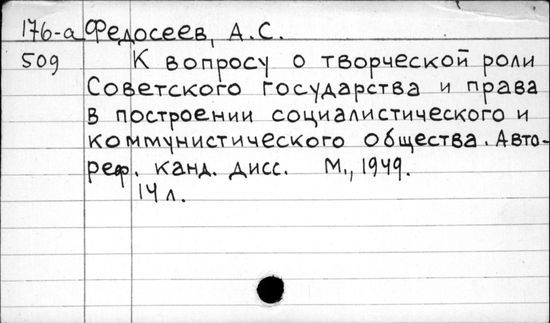 176-а Федосеев, А.С.
509 К вопросу о творческой роли
Советского государства и права
в построении социалистического и
коммунистического общества. Авто-
реф. канд. дисс. М., 1949.
14 л.